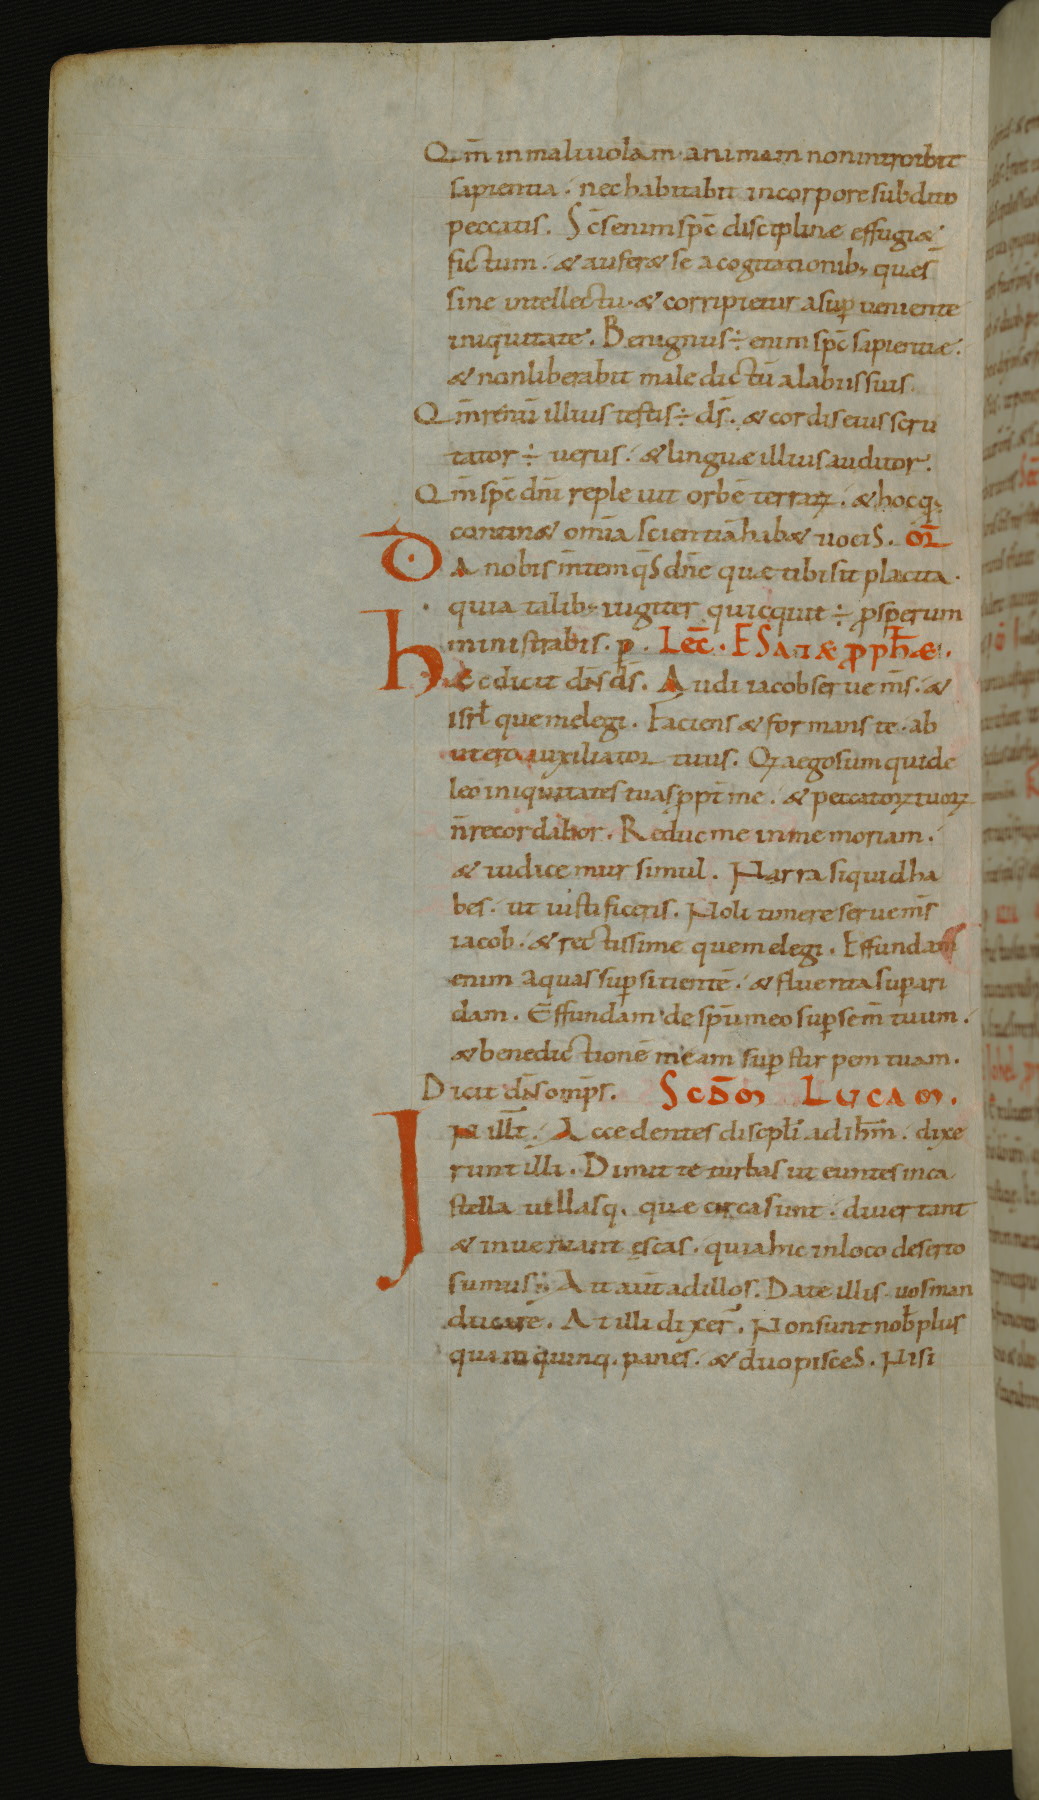 Qm̄ inmaliuolam animam nonintroibit
sapientia. nechabitabit incorporesubdito
peccatis. Sc̄senimsps̄ disciplinæ effugi&
fictum. & aufer& se acogitationib; quæs̄
sine intellectu. & corripietur asup̄ueniente
iniquitate. Benignus ÷ enim sps̄ sapientiæ.
& nonliberabit maledictū alabiissuis.
Qm̄ renū illius testis ÷ ds̄. & cordis eius scru
tator ÷ uerus. & linguæ illius auditor.
Qm̄ sps̄ dn̄i repleuit orbē terrarꝝ. & hocq;
contin& om̄ia scientiā hab& uocis. OR̄
DA nobis m̄tem qs̄ dn̄e quæ tibi sit placita.
quia talib; iugiter quicquit ÷ prosperum
ministrabis. p. Lec̄. ESAIÆ pphæ.
hæc dicit dn̄s ds̄. Audi iacob serue ms̄. &
isrl̄ quem elegi. Faciens & formans te. ab
utero auxiliator tuus. Qia ego sum qui de
leo iniquitates tuas ppt̄ me. & peccatorꝝ tuorꝝ
n̄ recordabor. Reduc me in memoriam.
& iudicemur simul. Narra siquid ha
bes. ut iustificeris. Noli timere serue ms̄
iacob. & rectissime quem elegi. Effundam
enim aquas sup̄ sitientē. & fluenta sup̄ ari
dam. Effundam de spū meo sup̄ sem̄ tuum.
& benedictionē meam sup̄ stirpem tuam.
Dicit dn̄s omps̄. SCDM LUCAM.
IN ill̄t. Accedentes discpl̄i ad ihm̄. dixe
runt illi. Dimitte turbas ut euntes in ca
stella uillasq. quæ circa sunt. diuertant
& inueniant escas. quia hic in loco deserto
sumus. Ait aūt ad illos. Date illis uos man
ducare. At illi dixer̄. Non sunt nob̄ plus
quam quinq. panes. & duo pisces. Nisi